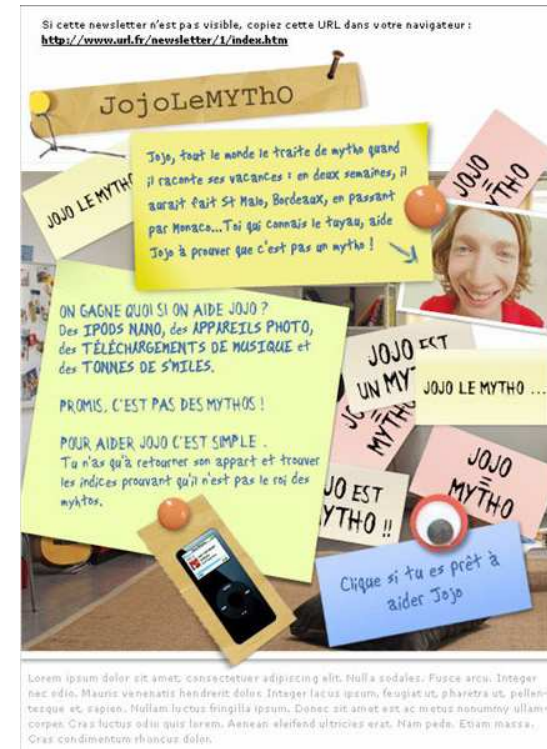 Si cette newsletter n'est pas visible, copiez cette URL dans votre navigateur :
http://www.url.fr/newsletter/1/index.htm
JojoLeMYThO
Jojo, tout le monde le traite de mytho quand
il raconte ses vacances : en deux semaines, il
aurait fait St Malo, Bordeaux, en passant
par Monaco...Toi qui connais le tuyau, aide
Jojo à prouver que c'est pas un mytho !
JOJO LE MYTHO
JOJO
=
MYTHO
ON GAGNE QUOI SI ON AIDE JOJO ?
Des IPODS NANO, des APPAREILS PHOTO,
des TÉLÉCHARGEMENTS DE MUSIQUE et
des TONNES DE S'MILES.
PROMIS, C'EST PAS DES MYTHOS !
POUR AIDER JOJO C'EST SIMPLE .
Tu n'as qu'à retourner son appart et trouver
les indices prouvant qu'il n'est pas le roi des
myhtos.
JOJO EST
UN MY
JOJO LE MYTHO ...
MYTHO
JOJO
=
MYTHO
JO EST
YTHO !!
Clique si tu es prêt à
aider Jojo
Lorem ipsum dolor sit amet, consectetuer adipiscing elit. Nulla sodales. Fusce arcu. Integer
nec odio. Mauris venenatis hendrerit dolor. Integer lacus ipsum, feugiat ut, pharetra ut, pellen-
tesque et, sapien. Nullam luctus fringilla ipsum. Donec sit amet est ac metus nonummy ullam-
corper. Cras luctus odio quis lorem. Aenean eleifend ultricies erat. Nam pede. Etiam massa.
Cras condimentum rhoncus dolor.